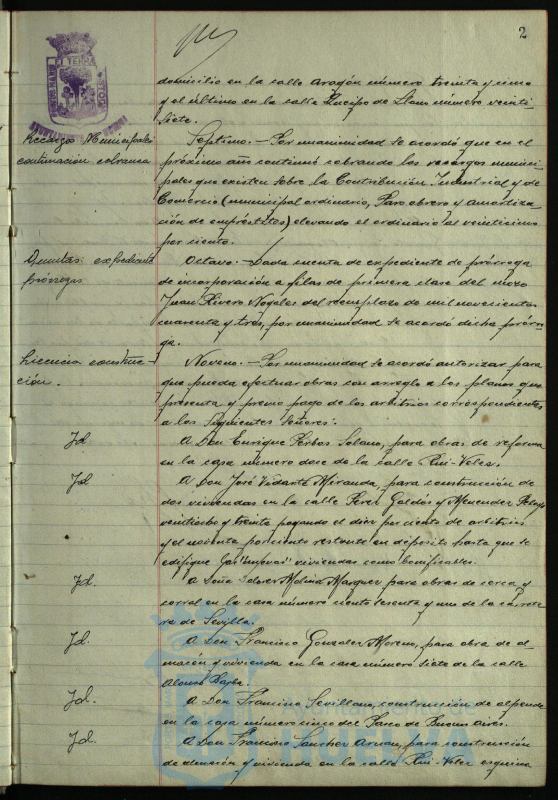 2
domicilio en la calle Aragón número treinta y cinco
y el último en la calle Queipo de Llano número veinti-
siete.
Recargos Municipales
continuación cobranza
Septimo.- Por unanimidad se acordó que en el
próximo año continue cobrando los recargos munici-
pales que existen sobre la Contribución Industrial y de
Comercio (municipal ordinario, Paro obrero y amortiza-
ción de empréstitos) elevando el ordinario al veinticinco
por ciento.
Quintas: expediente
prórrogas
Octavo.- Dada cuenta de expediente de prórroga
de incorporación a filas de primera clase del mozo
Juan Rivero Nogales del reemplazo de mil novecientos
cuarenta y tres, por unanimidad se acordó dicha prórro-
ga.
Licencia construc-
ción.
Noveno.- Por unanimidad se acordó autorizar para
que pueda efectuar obras con arreglo a los planos que
presenta y previo pago de los arbitrios correspondientes
a los siguientes Señores:
Id
A Don Enrique Solano, para obras de reforma
en la casa número doce de la calle Rui-Velez.
Id
A Don José Vidarte Miranda, para construcción de
dos viviendas en la calle Perez Galdós y Menendez Pelayo
veintiocho y treinta pagando el diez por ciento de arbitrios
y el noventa por ciento restante en depósito hasta que se
edifique viviendas como bonificables.
Id.
A Doña Dolores Molina Marquez para obras de cerca y
corral en la casa número ciento sesenta y uno de la carrete-
ra de Sevilla.
Id.
A Don Francisco Gonzalez Moreno, para obra de al-
macén y vivienda en la casa número siete de la calle
Alonso
Id.
A Don Francisco Sevillano, construcción de alpende
en la casa número cinco del Paseo de Buenos Aires.
Id.
A Don Francisco Sanchez para construcción
de almacén y vivienda en la calle Rui-Velez esquina